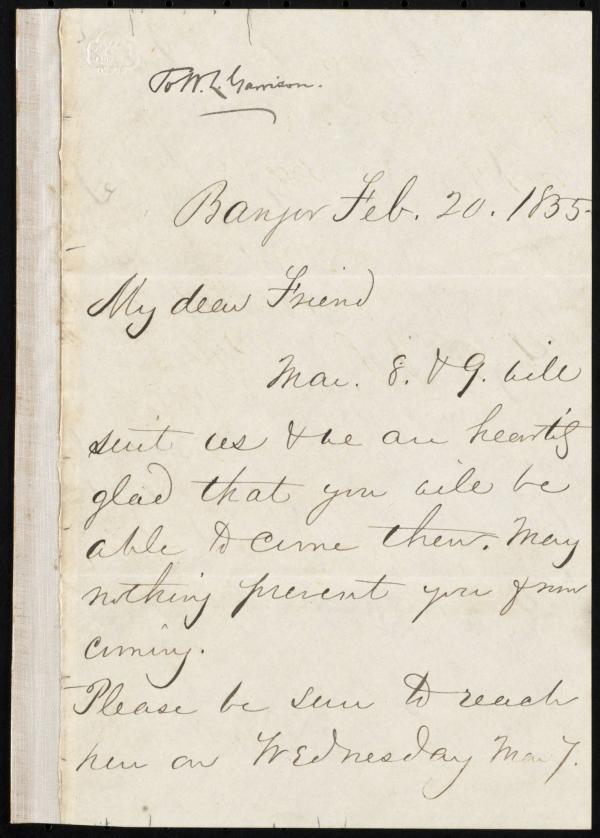 To W. L. Garrison.
Bangor Feb. 20. 1855.
My dear Friend
Mar. 8. & 9. will
suit us & we are heartily
glad that you will be
able to come then. May
nothing prevent you from
coming.
Please be sure to reach
here on Wednesday Mar 7.